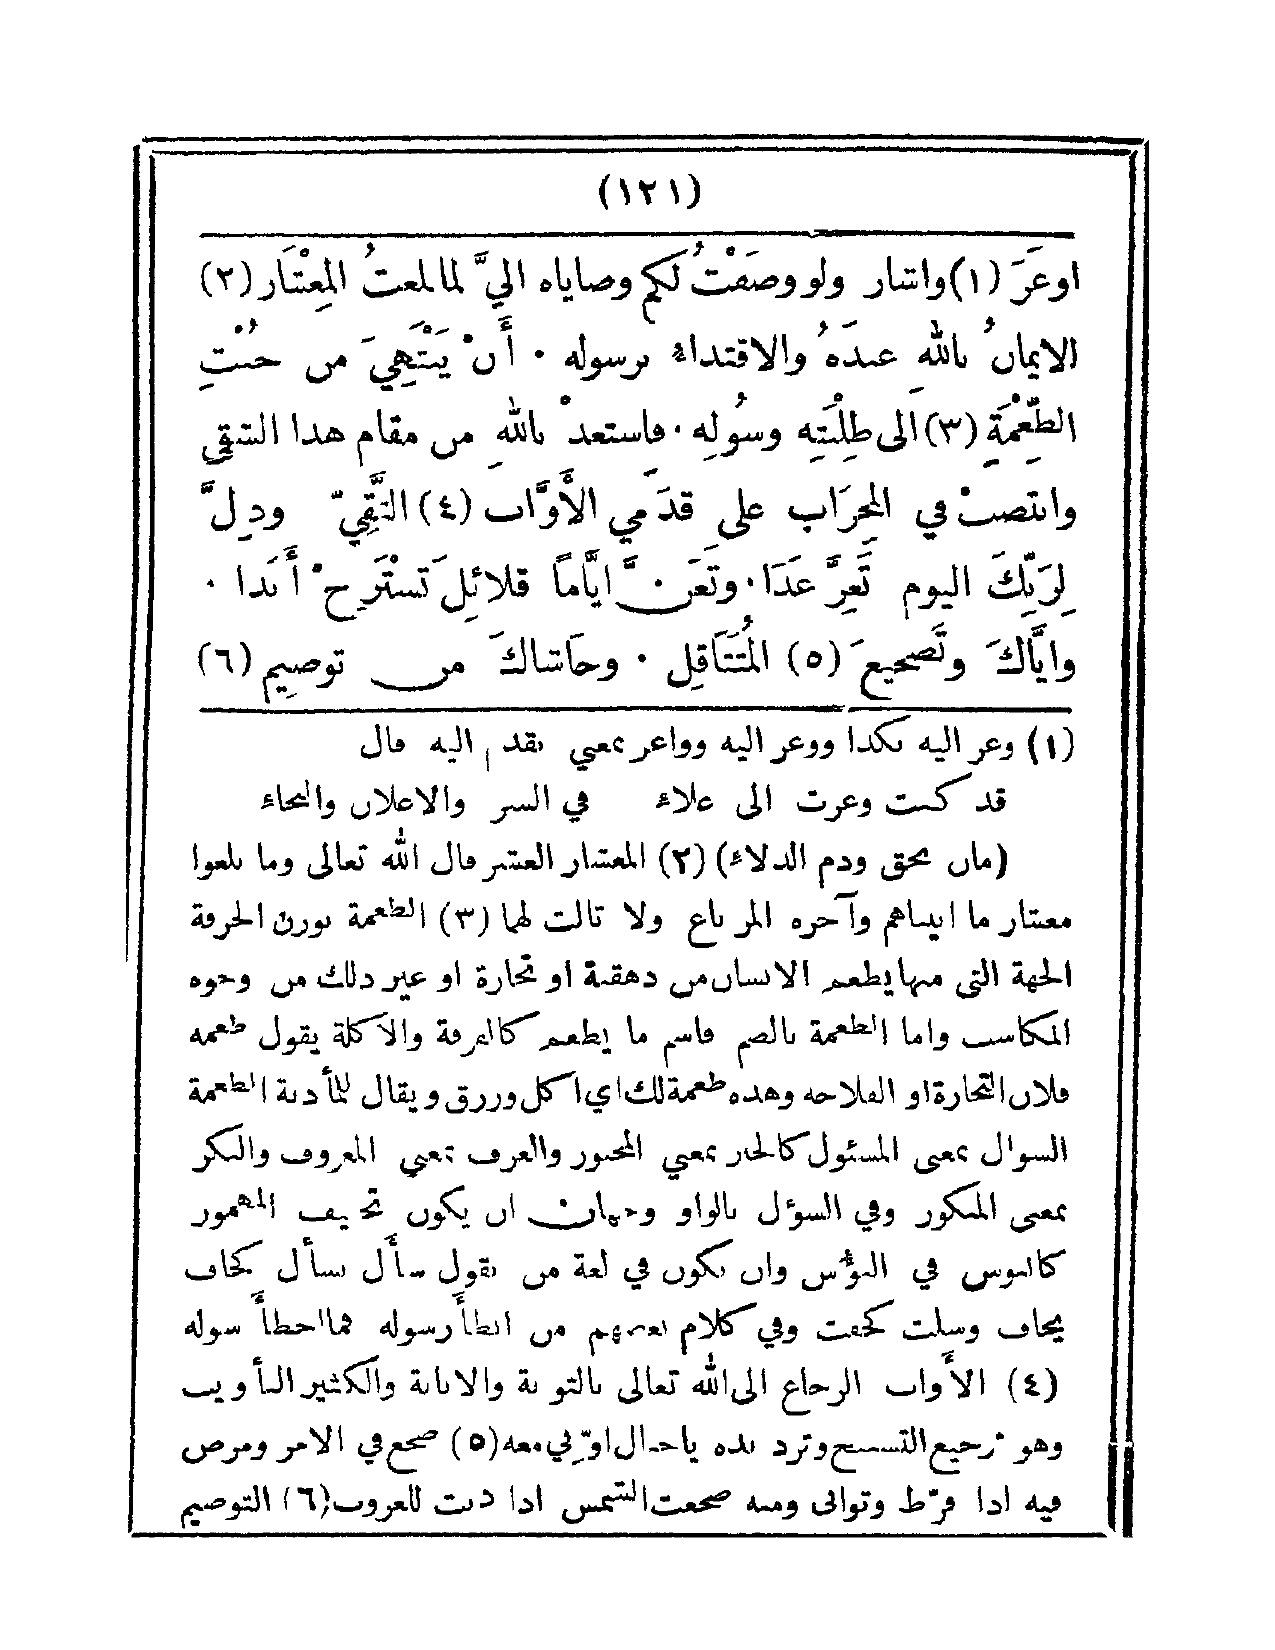 (١٢١)
اوعَزَ (١) واشار ولو وصَفْتُ لكم وصاياه اليَّ لما بلغتُ المِعْشَار (٢)
الايمانُ باللهِ عبدَهُ والاقتداء برسوله . أَنْ يَنْتَهِيَ من خُبْثِ
الطِّعْمَةِ (٣) الى طِلْبَتِه وسُولِه . فاستعذْ باللهِ من مقام هذا الشقي
وانتصبْ في المِحرَابِ على قدَمي الأَوَّاب (٤) التَّقِيّ وذِلَّ
لِرَبِّكَ اليوم تَعِزَّ غدَا . وتَعَنَّ ايَّاماً قلائِلَ تَسْتَرِحْ أَبَدا .
وايَّاكَ وتَصحيعَ (٥) المُتَثَاقِلِ . وحَاشاكَ من توصِيمِ (٦)
(١) وعز اليه بكذا ووعز اليه وواعز بمعي تقدم اليه قال
قد كنت وعزت الى علاء في السر والاعلان والنجاء
(بان يحق وذم الدلاء) (٢) المعشار العشر قال الله تعالى وما بلغوا
معشار ما آتيناهم وآخره المرباع ولا ثالث لهما (٣) الطعمة بوزن الحرفة
الجهة التي منها يطعم الانسان من دهقنة او تجارة او غير ذلك من وجوه
المكاسب واما الطعمة بالضم فاسم ما يطعم كالغرفة والاكلة يقول طعمه
فلان التجارة او الفلاحه وهذه طعمة لك اي اكل ورزق ويقال للمأدبة الطعمة
السوال بمعنى المسئول كالخبز بمعي المخبوز والعرف بمعي المعروف والنكر
بمعى المنكور وفي السؤل بالواو وجهان ان يكون تخفيف المهموز
كالبوس في البؤس وان يكون في لغة من يقول سأل يسأل كخاف
يخاف وسلت كخفت وفي كلام بعضهم من ابطأ رسوله فما اخطأ سوله
(٤) الأواب الرجاع الى الله تعالى بالتوبة والانابة والكثير التأويب
وهو ترجيع التسبيح وترد بده يا جبال اوّبي معه (٥) ضجع في الامر ومرض
فيه اذا فرّط وتوانى ومنه ضجعت الشمس اذا دنت للغروب (٦) التوصيم